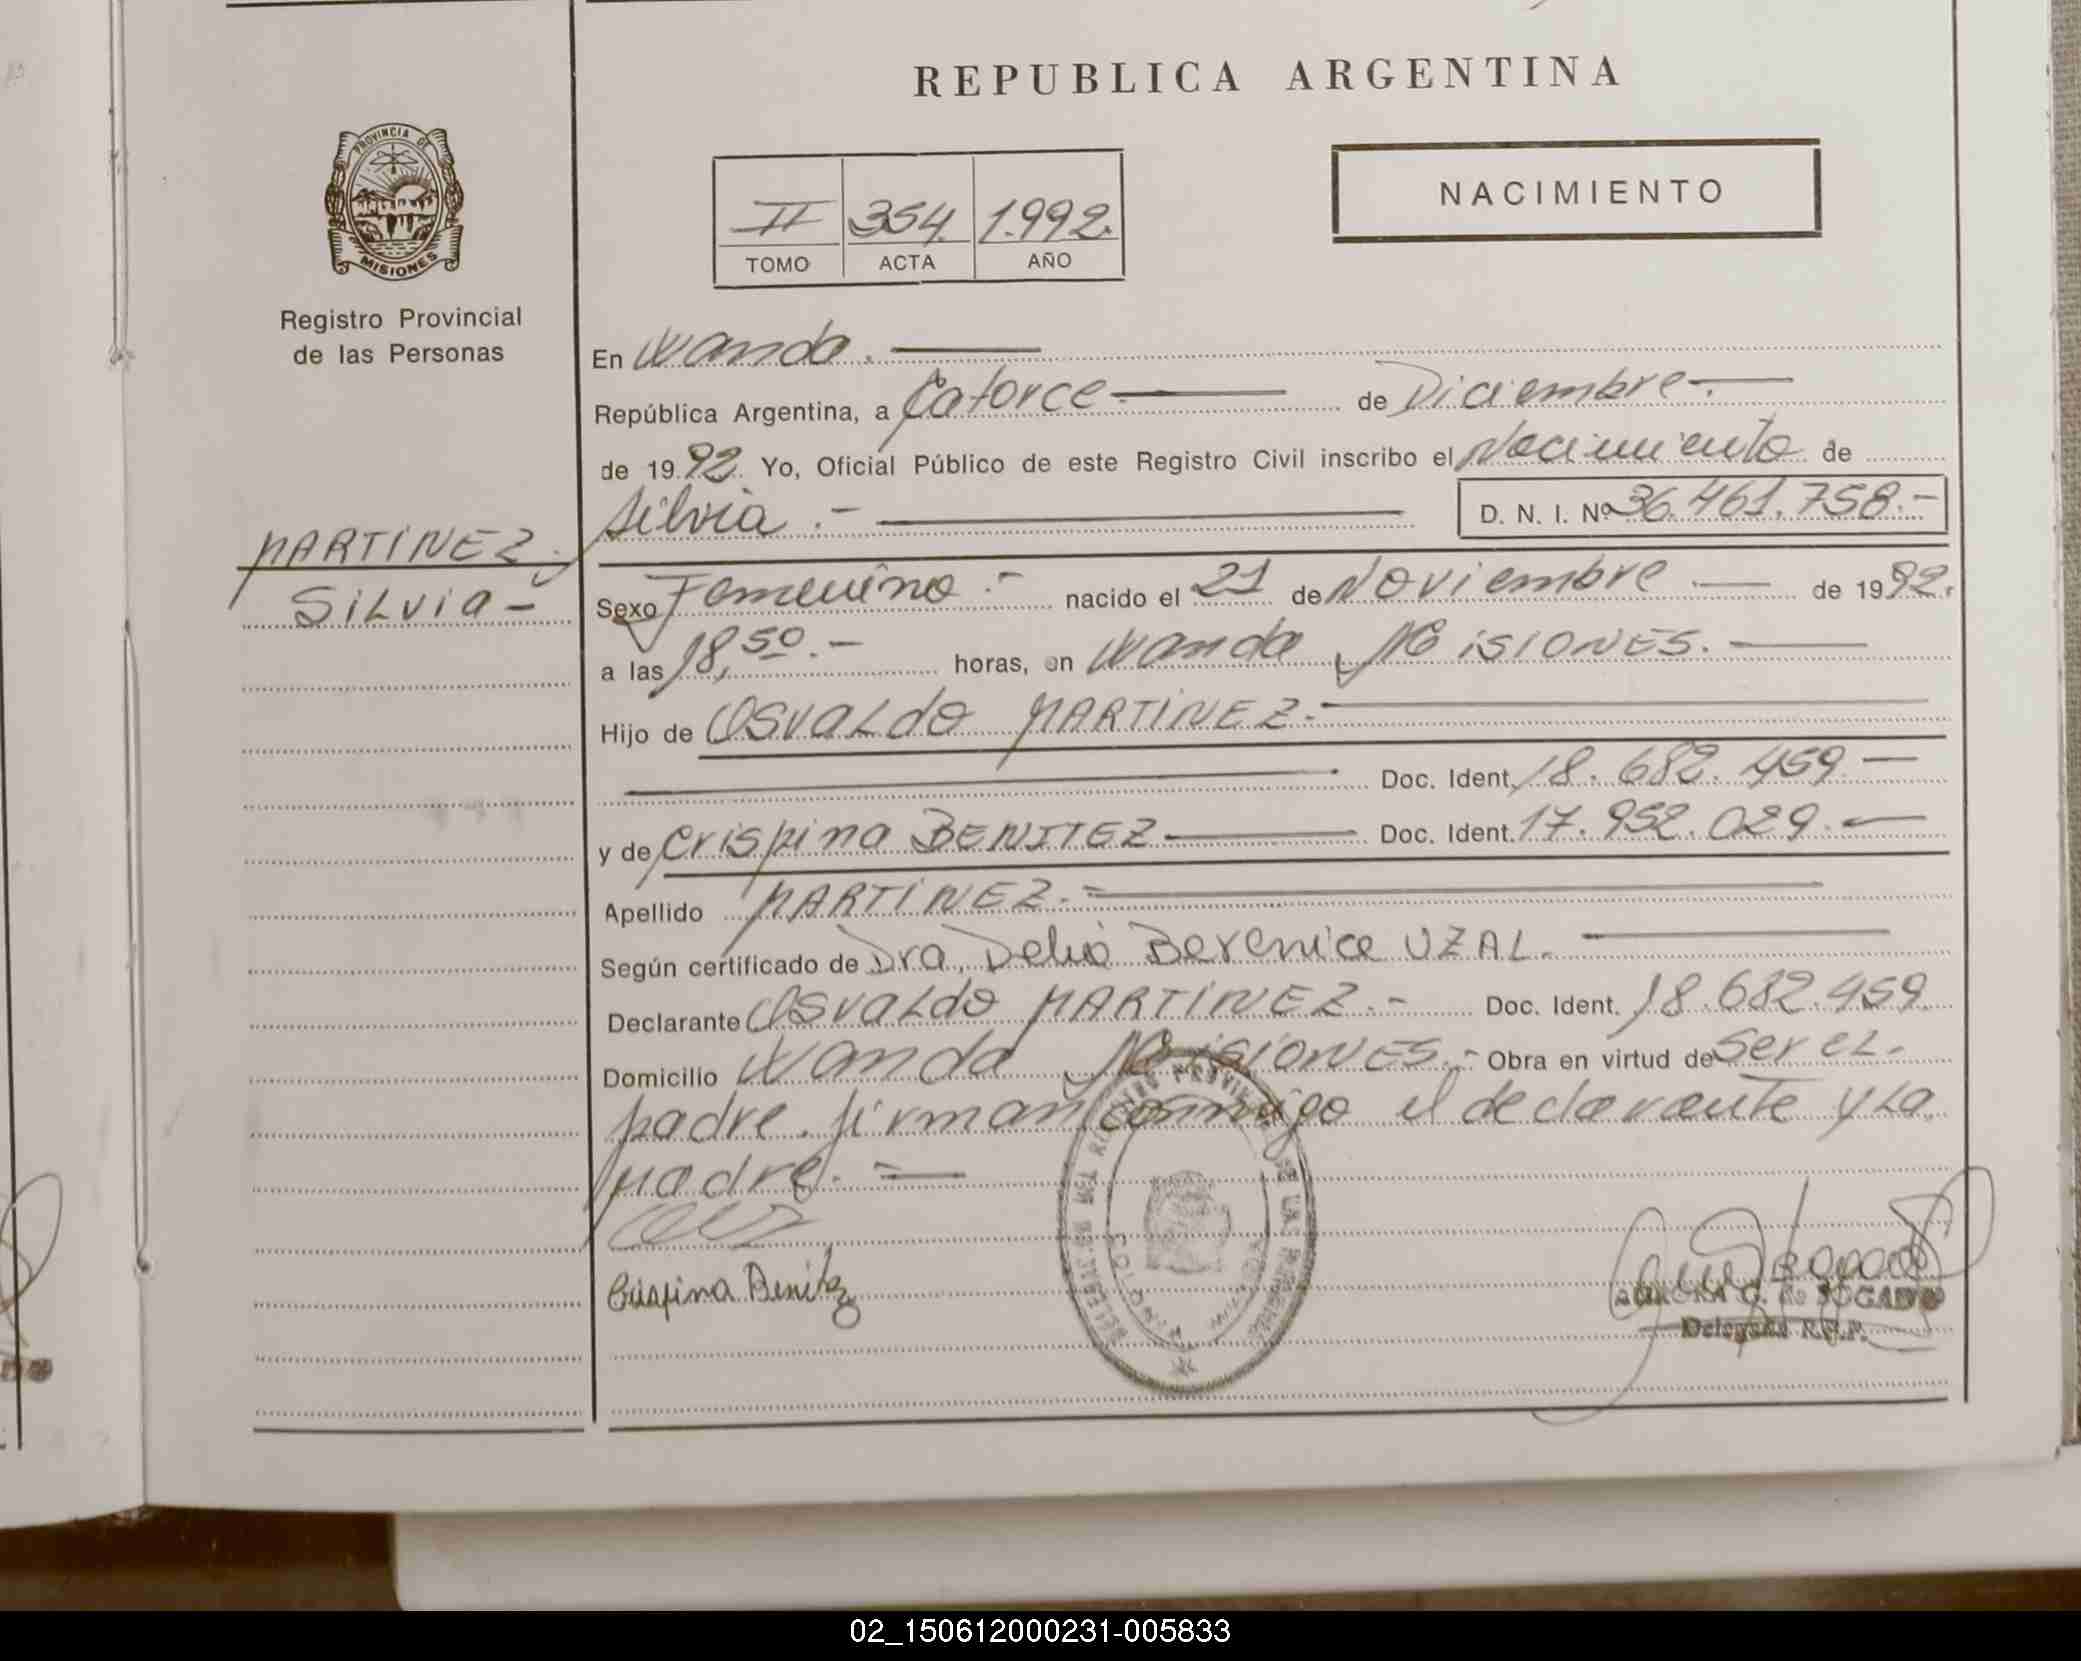 REPUBLICA ARGENTINA
PROVINCIA DE
MISIONES
Registro Provincial
de las Personas
NACIMIENTO
II 354. 1.992.
TOMO ACTA AÑO
En Wanda.
República Argentina, a Catorce de Diciembre.
de 19 92. Yo, Oficial Público de este Registro Civil inscribo el Nacimiento de
Silvia.- D. N. I. Nº 36.461.758.-
MARTINEZ,
SiLvia-
Sexo Femenino.- nacido el 21 de Noviembre. de 19 92.
a las 18,50.- horas, en Wanda, MisiONES.
Hijo de OSvaLdo MARTINEZ.
Doc. Ident. 18.682.459.
y de Crispina BENITEZ Doc. Ident. 17.952.029.
Apellido MARTINEZ.
Según certificado de Dra. Delia Berenice UZAL.
Declarante OSvaLdo MARTINEZ.- Doc. Ident. 18.682.459
Domicilio Wanda, MisiONES.- Obra en virtud de Ser eL
padre. firman conmigo el declarante y La
Madre.
Crispina Benitez
G. de BOGADO
Delegada R.P.P.
02_150612000231-005833